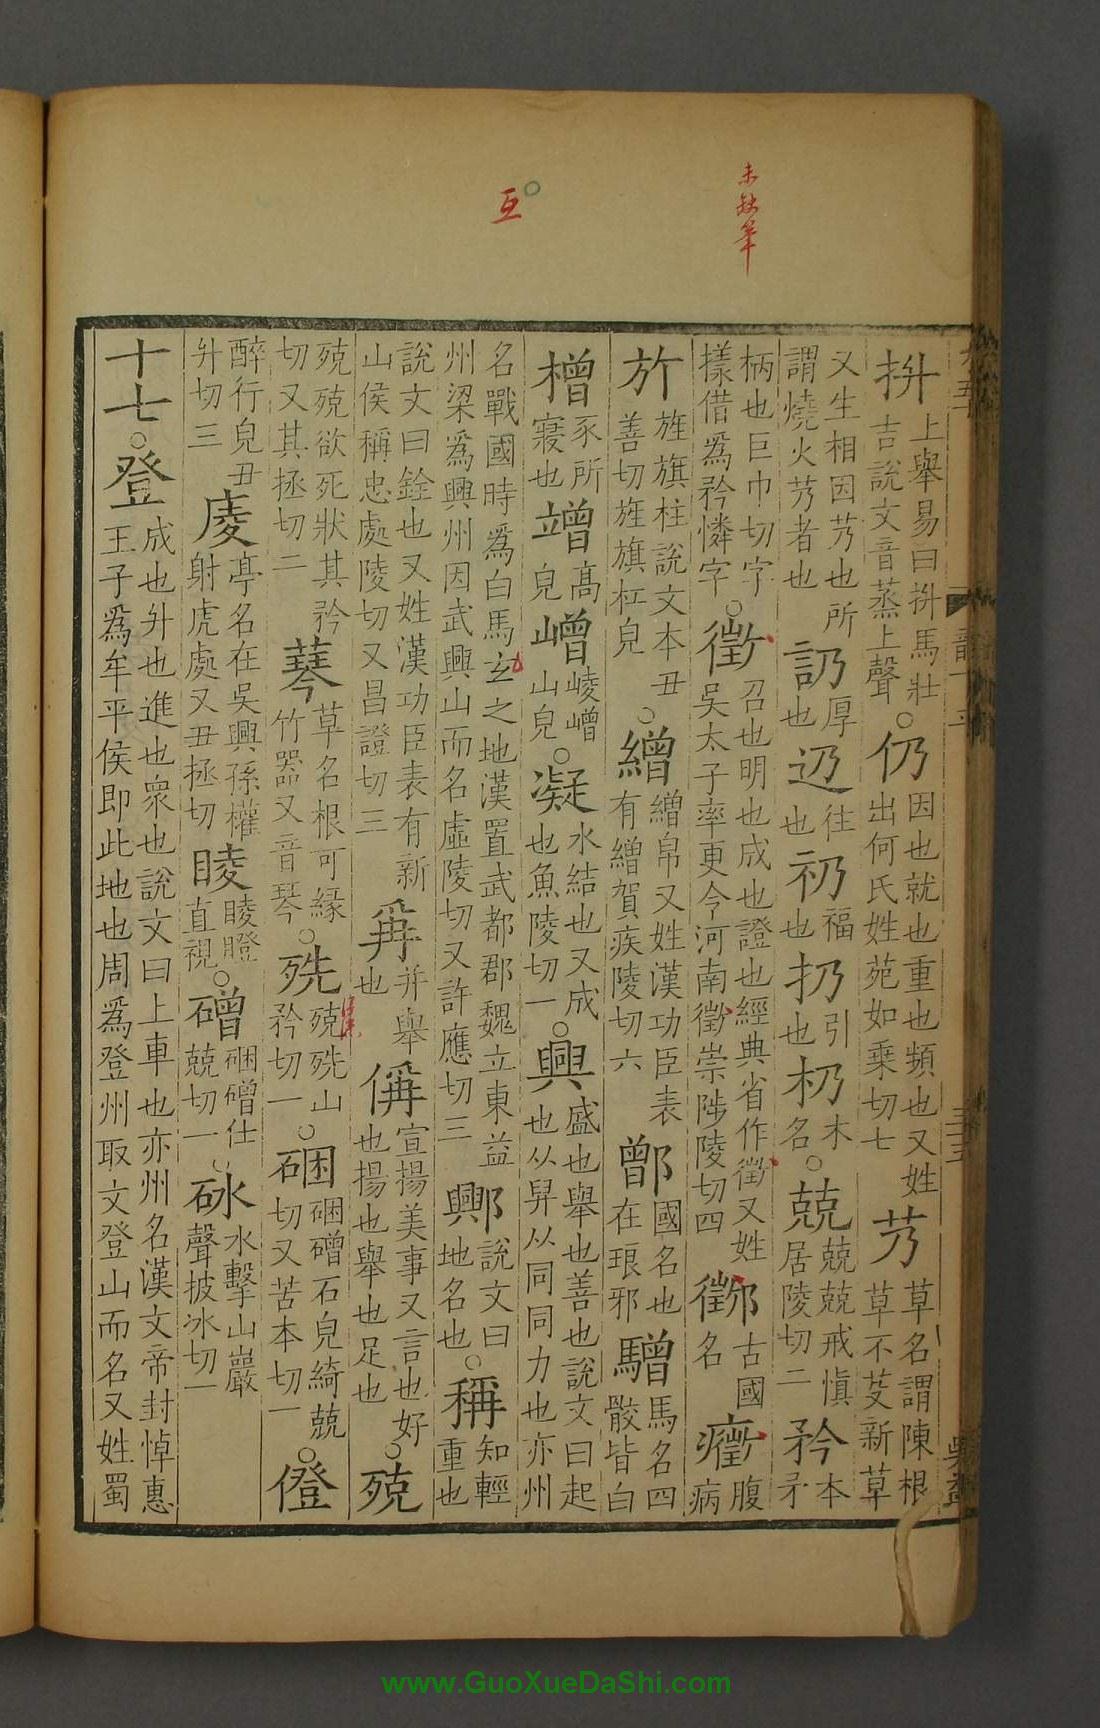 未缺筆
互
抍上舉易曰抍馬壯吉說文音蒸上聲○仍因也就也重也頻也又姓出何氏姓苑如乘切七芿草名謂陳根草不芟新草
又生相因芿也所謂燒火芿者也訒厚也辸往也礽福也扔引也杒木名○兢兢兢戒慎居陵切二矜本矛
柄也巨巾切字㨾借爲矜憐字○徵召也明也成也證也經典省作徵又姓吳太子率更令河南徵崇陟陵切四䣊古國名癥腹病
㫃旌旗柱說文本丑善切旌旗杠皃○繒繒帛又姓漢功臣表有繒賀疾陵切六鄫國名也在琅邪驓馬名四骹皆白
橧豕所寢也竲高皃嶒崚嶒山皃○凝水結也又成也魚陵切一○興盛也舉也善也說文曰起也从舁从同同力也亦州
名戰國時爲白馬玄之地漢置武都郡魏立東益州梁爲興州因武興山而名虛陵切又許應切三鄭說文曰地名也○稱知輕重也
說文曰銓也又姓漢功臣表有新山侯稱忠處陵切又昌證切三爯并舉也偁宣揚美事又言也好也揚也舉也足也○殑
殑殑欲死狀其矜切又其拯切二䔷草名根可緣竹器又音琴○殑殑山矜切一○硱硱磳石皃綺兢切又苦本切一○僜
醉行皃丑升切三庱亭名在吳興孫權射虎處又丑拯切睖睖瞪直視○磳硱磳仕兢切一○砯水擊山巖聲披冰切一
十七○登成也升也進也衆也說文曰上車也亦州名漢文帝封悼惠王子爲牟平侯即此地也周爲登州取文登山而名又姓蜀
www.GuoXueDaShi.com